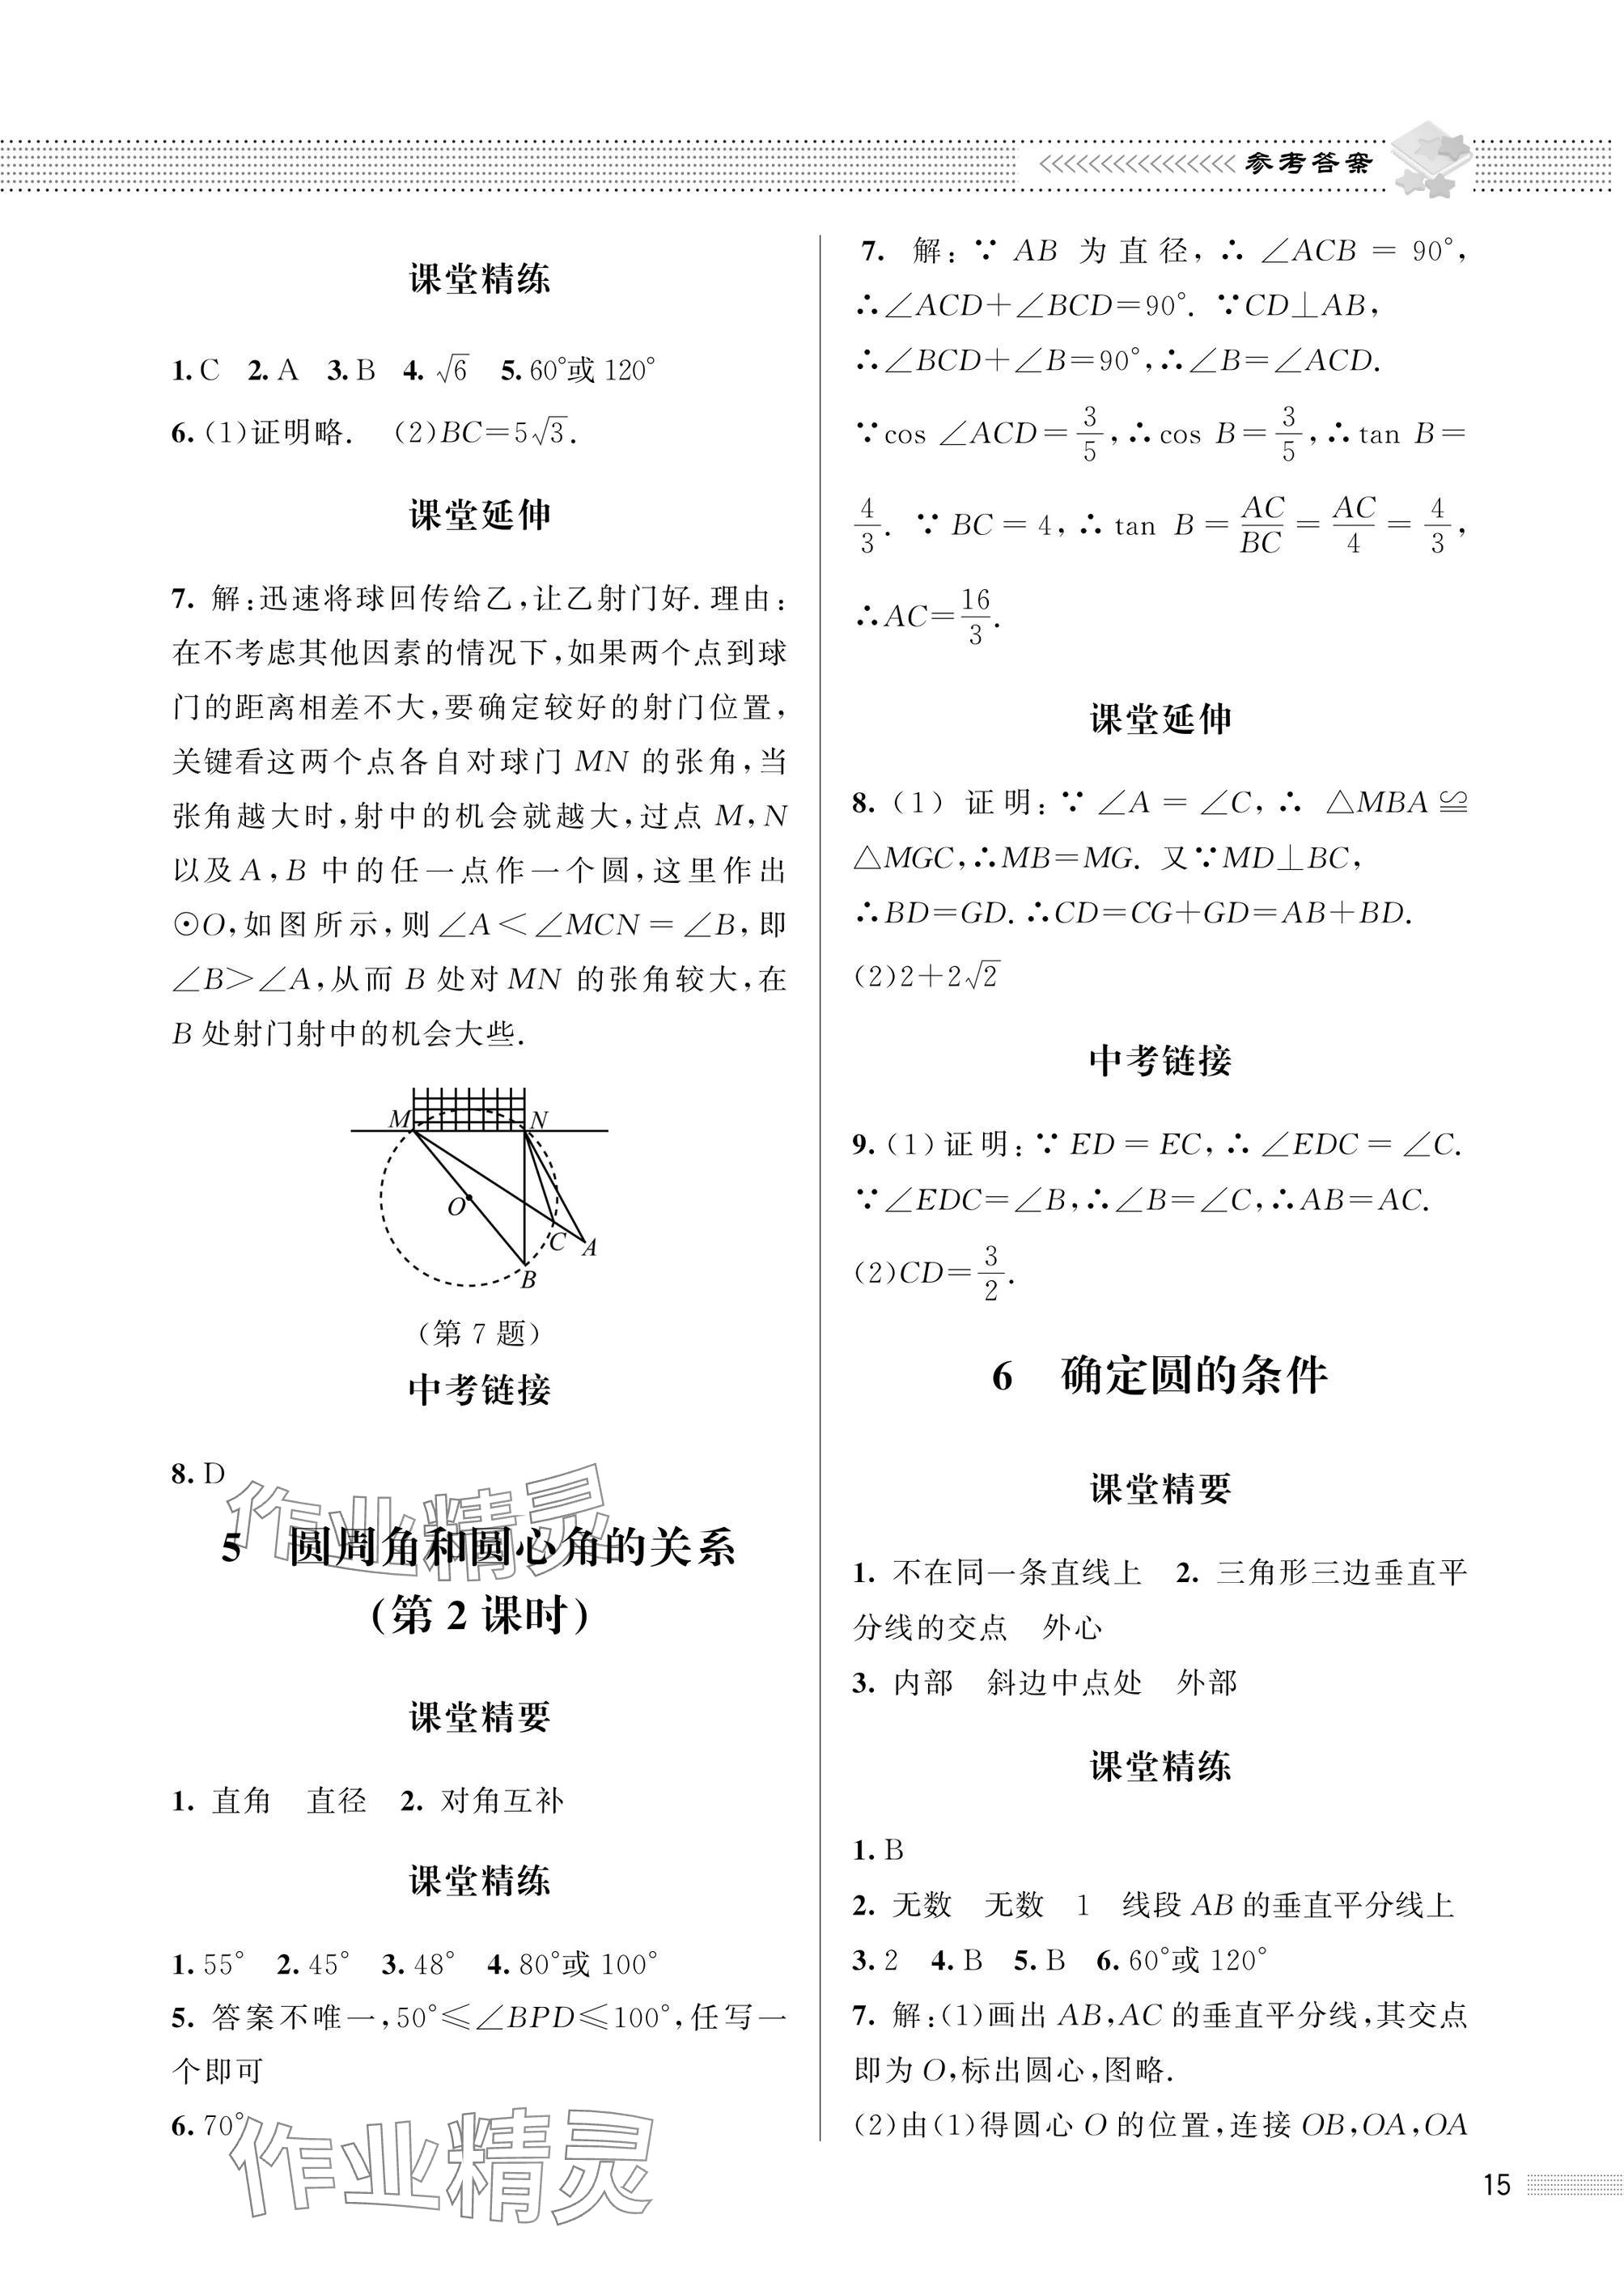 参考答案
课堂精练
1. C 2. A 3. B 4. √6 5. 60°或 120°
6. (1)证明略. (2)BC=5√3.
课堂延伸
7. 解:迅速将球回传给乙,让乙射门好.理由:
在不考虑其他因素的情况下,如果两个点到球
门的距离相差不大,要确定较好的射门位置,
关键看这两个点各自对球门 MN 的张角,当
张角越大时,射中的机会就越大,过点 M,N
以及 A,B 中的任一点作一个圆,这里作出
⊙O,如图所示,则∠A<∠MCN=∠B,即
∠B>∠A,从而 B 处对 MN 的张角较大,在
B 处射门射中的机会大些.
M N
O
C A
B
(第 7 题)
中考链接
8. D
5 圆周角和圆心角的关系
(第 2 课时)
课堂精要
1. 直角 直径 2. 对角互补
课堂精练
1. 55° 2. 45° 3. 48° 4. 80°或 100°
5. 答案不唯一,50°≤∠BPD≤100°,任写一
个即可
6. 70°
7. 解:∵AB 为直径,∴∠ACB=90°,
∴∠ACD+∠BCD=90°. ∵CD⊥AB,
∴∠BCD+∠B=90°,∴∠B=∠ACD.
∵cos ∠ACD=3/5,∴cos B=3/5,∴tan B=
4/3. ∵BC=4,∴tan B=AC/BC=AC/4=4/3,
∴AC=16/3.
课堂延伸
8. (1)证明:∵∠A=∠C,∴△MBA≌
△MGC,∴MB=MG. 又∵MD⊥BC,
∴BD=GD.∴CD=CG+GD=AB+BD.
(2)2+2√2
中考链接
9. (1)证明:∵ED=EC,∴∠EDC=∠C.
∵∠EDC=∠B,∴∠B=∠C,∴AB=AC.
(2)CD=3/2.
6 确定圆的条件
课堂精要
1. 不在同一条直线上 2. 三角形三边垂直平
分线的交点 外心
3. 内部 斜边中点处 外部
课堂精练
1. B
2. 无数 无数 1 线段 AB 的垂直平分线上
3. 2 4. B 5. B 6. 60°或 120°
7. 解:(1)画出 AB,AC 的垂直平分线,其交点
即为 O,标出圆心,图略.
(2)由(1)得圆心 O 的位置,连接 OB,OA,OA
15
作业精灵
作业精灵